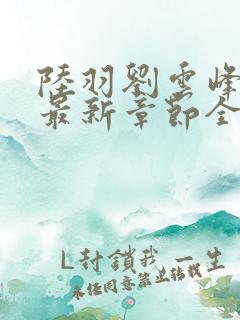 陸羽劉雲峰
最新章節全
L封鎖我一生
未任同意禁止转载